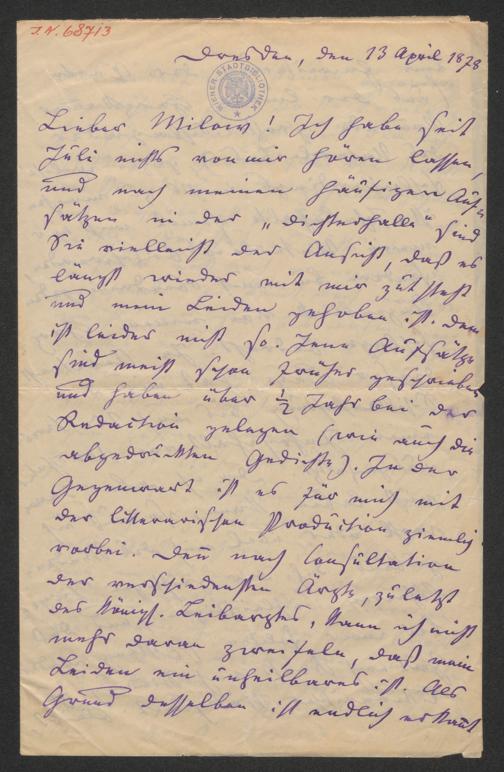 J.N. 68713
Dresden, den 13 April 1878
WIENER STADTBIBLIOTHEK
Lieber Milow! Ich habe seit
Juli nichts von mir hören lassen,
und nach meinen häufigen Auf-
sätzen in der „Dichterhalle" sind
Sie vielleicht der Ansicht, daß es
längst wieder mit mir gut steht
und mein Leiden gehoben ist. Dem
ist leider nicht so. Jene Aufsätze
sind meist schon früher geschrieben
und haben über ½ Jahr bei der
Redaction gelegen (wie auch die
abgedruckten Gedichte). In der
Gegenwart ist es für mich mit
der litterarischen Production ziemlich
vorbei. Den̄ nach Consultation
der verschiedensten Ärzte, zuletzt
des Königl. Leibarztes, kann ich nicht
mehr daran zweifeln, daß mein
Leiden ein unheilbares ist. Als
Grund desselben ist endlich erkan̄t